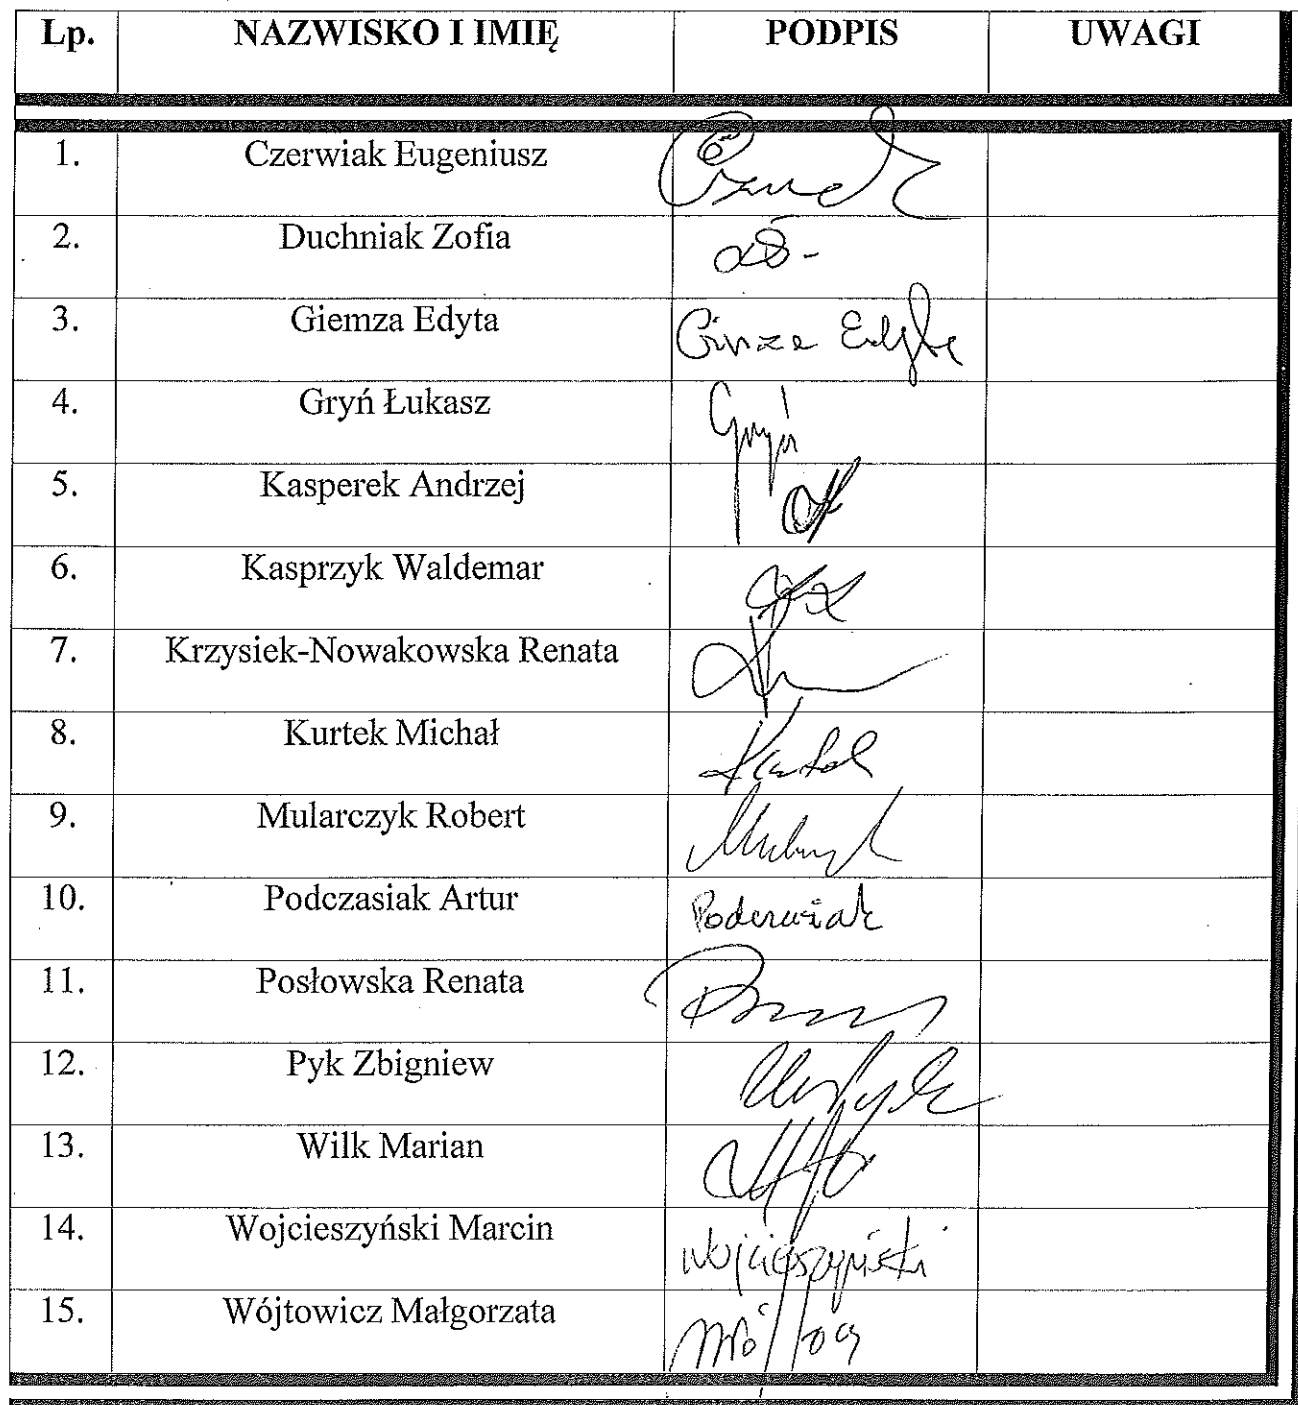 Lp. NAZWISKO I IMIĘ PODPIS UWAGI
1. Czerwiak Eugeniusz
2. Duchniak Zofia
3. Giemza Edyta
4. Gryń Łukasz Gryń
5. Kasperek Andrzej
6. Kasprzyk Waldemar
7. Krzysiek-Nowakowska Renata
8. Kurtek Michał
9. Mularczyk Robert
10. Podczasiak Artur Podczasiak
11. Posłowska Renata
12. Pyk Zbigniew
13. Wilk Marian
14. Wojcieszyński Marcin Wojcieszyński
15. Wójtowicz Małgorzata